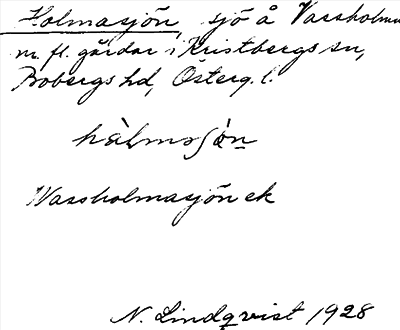 Holmasjön, sjö å Vassholma
m. fl. gårdar i Kristbergs sn,
Bobergs hd, Österg. l.
hàlmsjön
Wassholmasjön ek
N. Lindqvist 1928